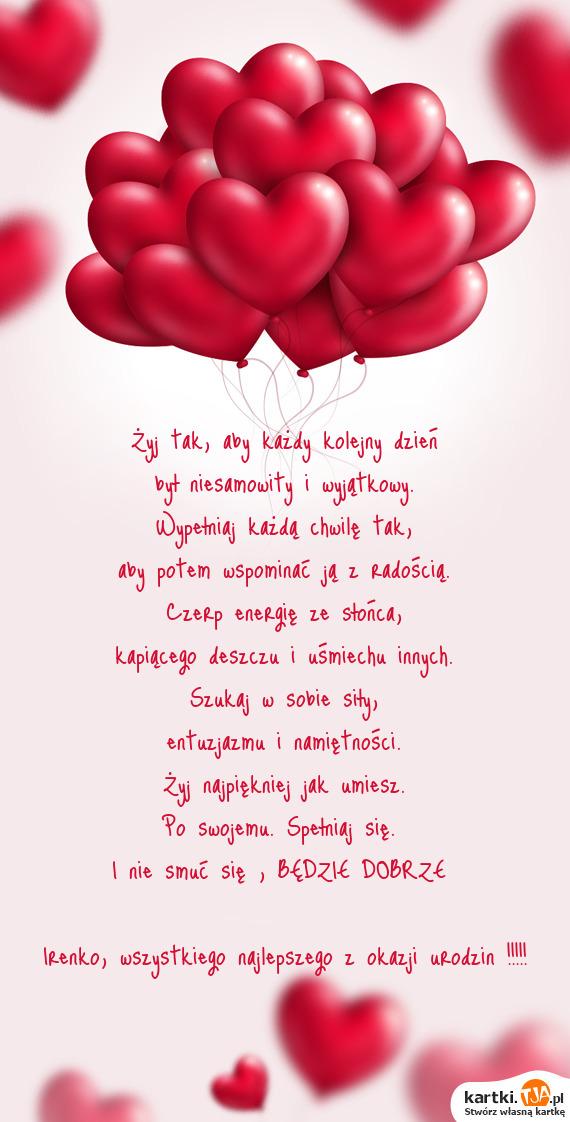 Żyj tak, aby każdy kolejny dzień
był niesamowity i wyjątkowy.
Wypełniaj każdą chwilę tak,
aby potem wspominać ją z radością.
Czerp energię ze słońca,
kapiącego deszczu i uśmiechu innych.
Szukaj w sobie siły,
entuzjazmu i namiętności.
Żyj najpiękniej jak umiesz.
Po swojemu. Spełniaj się.
I nie smuć się , BĘDZIE DOBRZE
Irenko, wszystkiego najlepszego z okazji urodzin !!!!!
kartki.TJA.pl
Stwórz własną kartkę